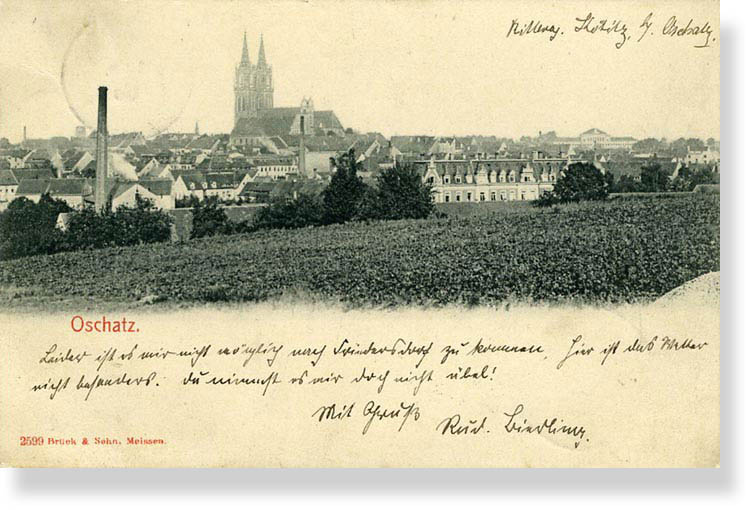 Ritterg. Skötitz, b/ Oschatz
Oschatz.
Leider ist es mir nicht möglich nach Friedersdorf zu kommen, hier ist das Wetter
nicht besonders. Du nimmst es mir doch nicht übel!
Mit Gruß
Rud.
2599 Brück & Sohn, Meissen.